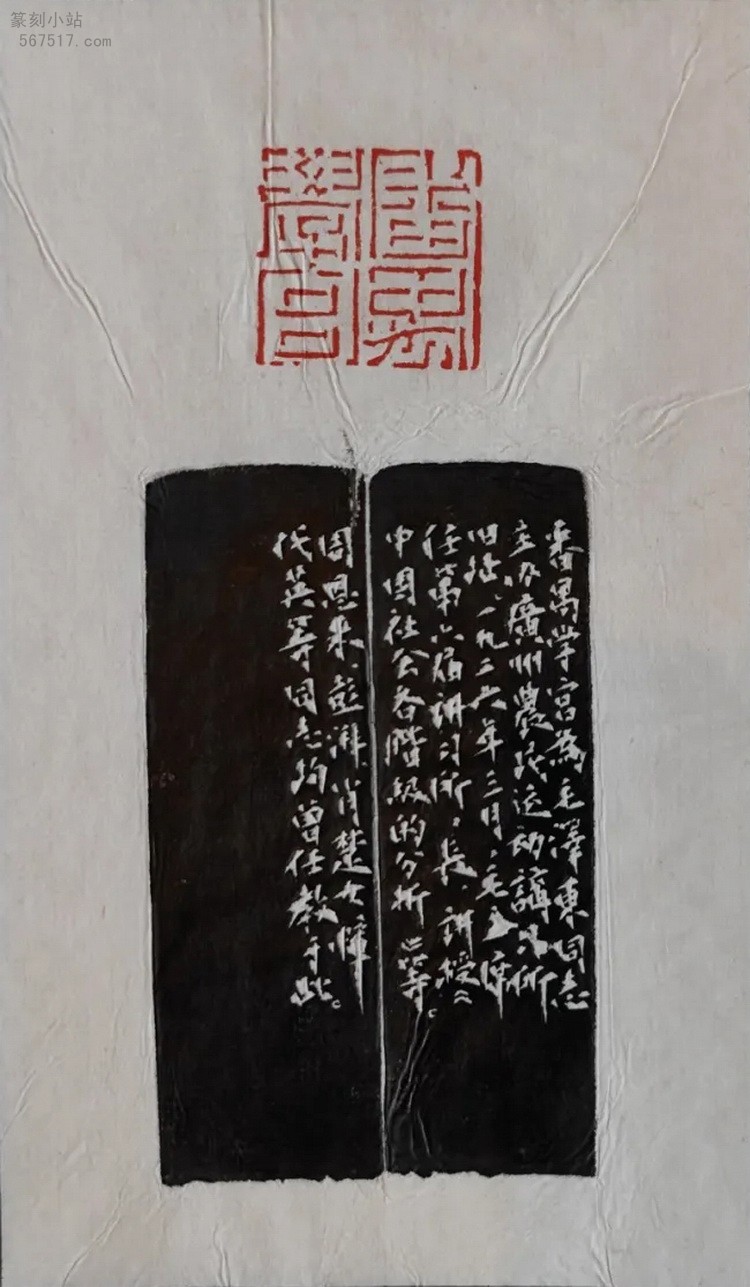 篆刻小站
567517.com
番禺
學宫
番禺学宫為毛澤東同志
主办廣州農民运动講习所
旧址。一九二六年三月，毛主席
任第六届讲习所〻長、讲授《
中国社会各階级的分析》等。
周恩来、彭湃、肖楚女、恽
代英等同志均曾任教于此。